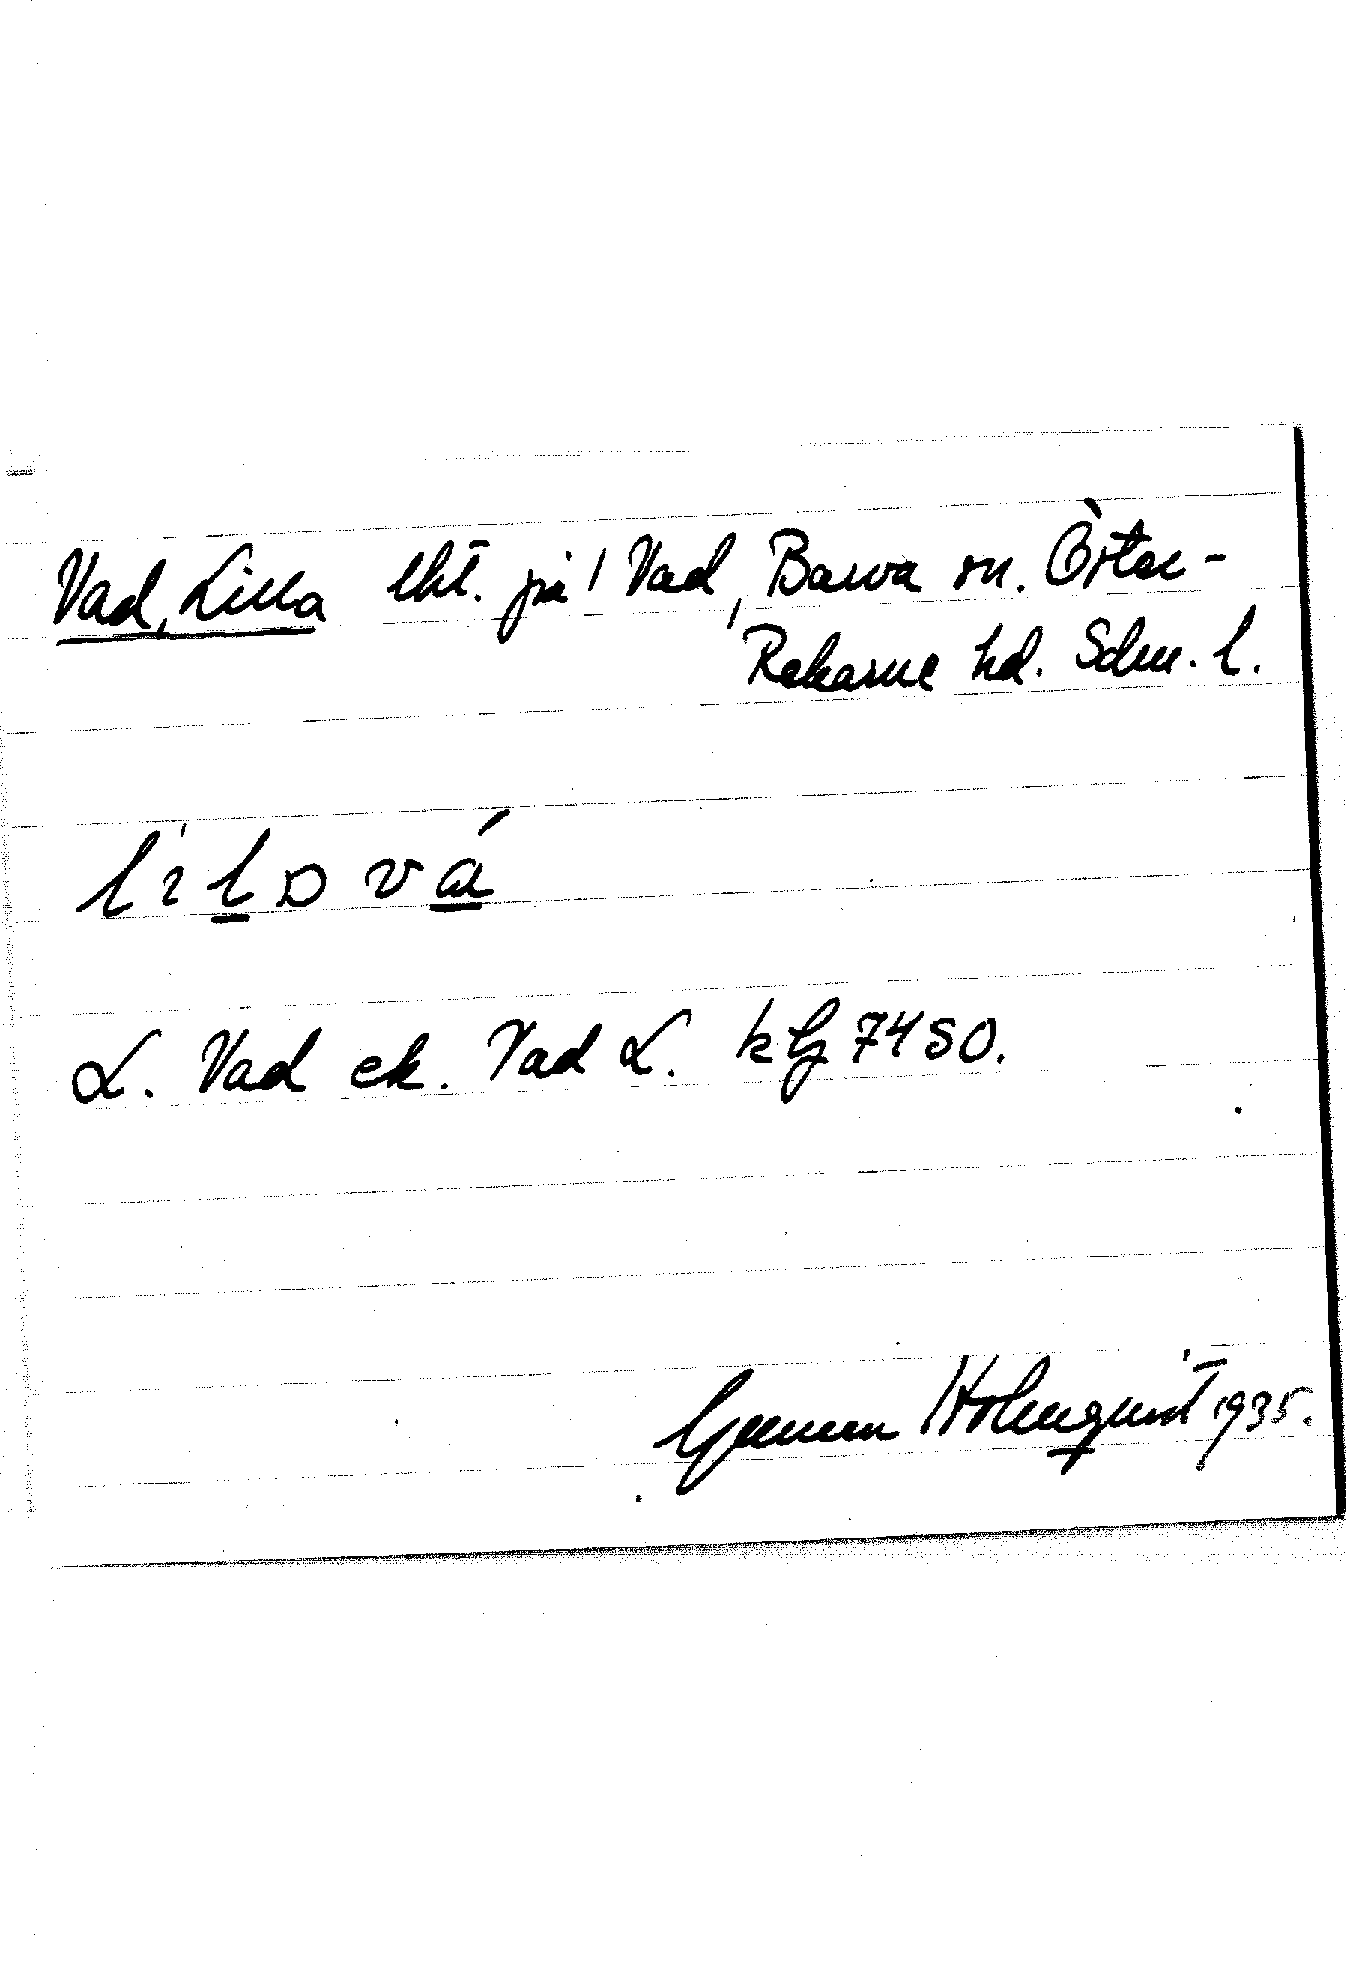 Vad, Lilla lht. på Vad, Barva sn. Öster-
Rekarne hd. Sdm. l.
L. Vad ek. Vad L. 7450.
Gunnar Holmquist 1935.